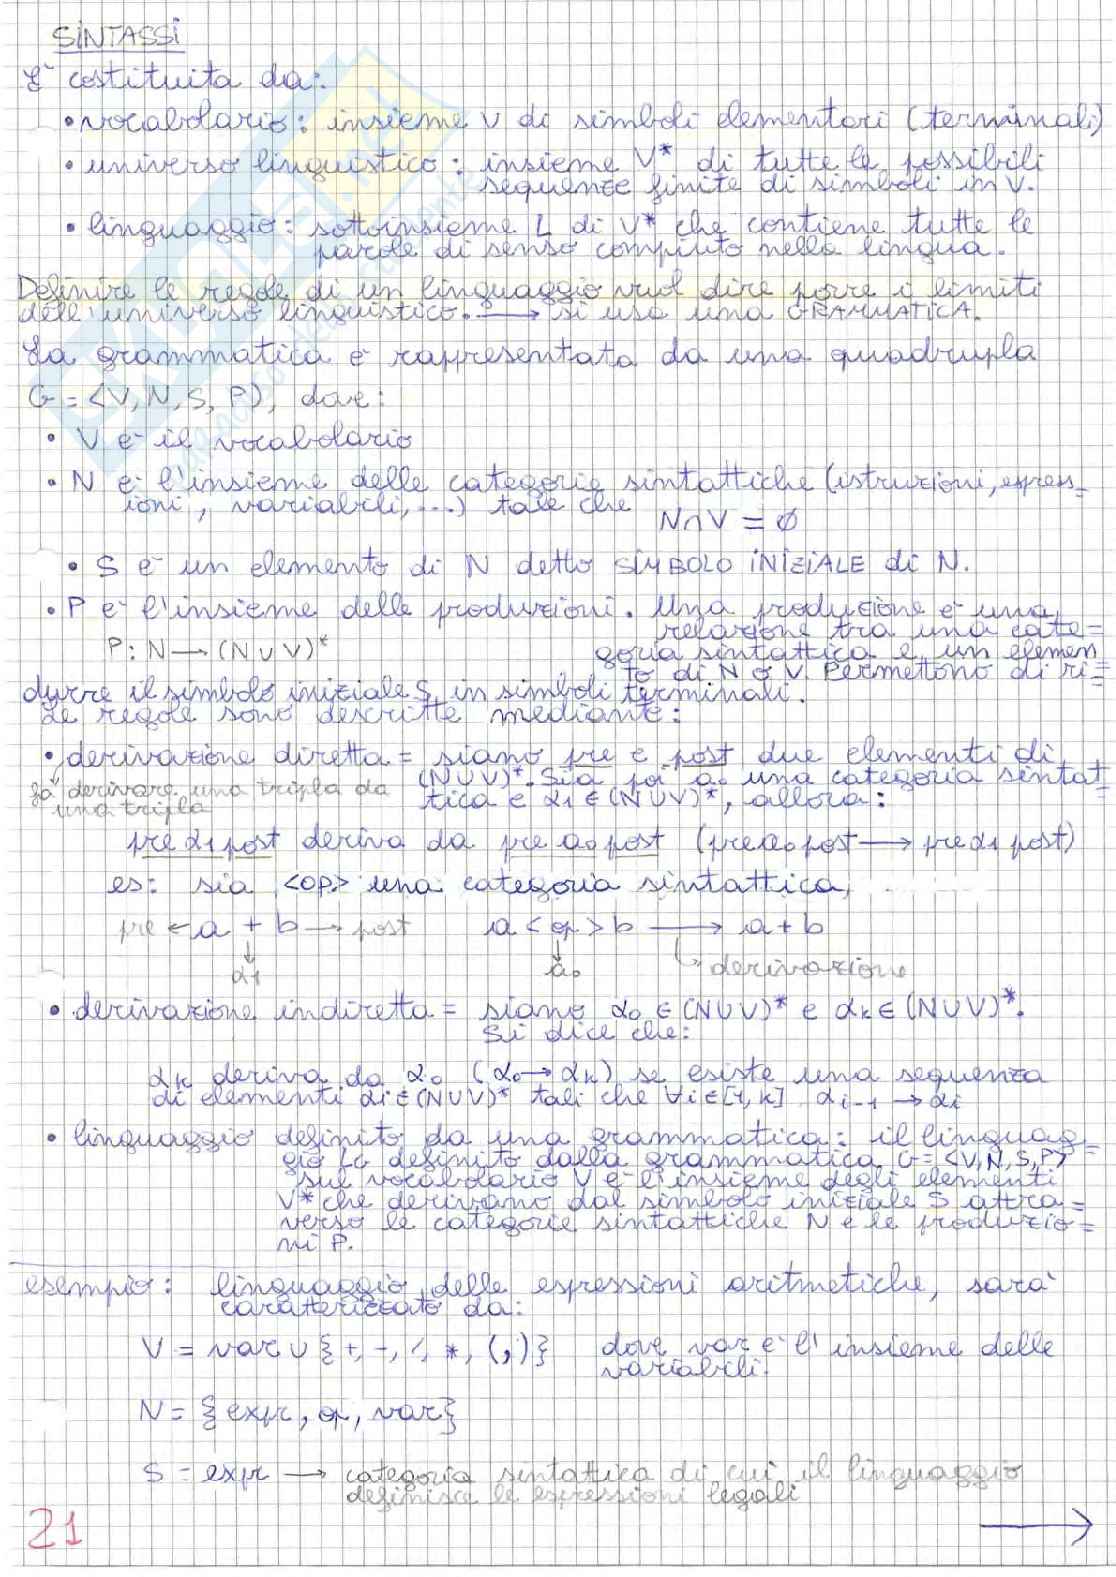 SINTASSI
E' costituita da:
• vocabolario: insieme V di simboli elementari (terminali)
• universo linguistico: insieme V* di tutte le possibili
sequenze finite di simboli in V.
• linguaggio: sottoinsieme L di V* che contiene tutte le
parole di senso compiuto nella lingua.
Definire le regole di un linguaggio vuol dire porre i limiti
dell'universo linguistico. → si usa una GRAMMATICA.
La grammatica è rappresentata da una quadrupla
G = <V, N, S, P>, dove:
• V è il vocabolario
• N è l'insieme delle categorie sintattiche (istruzioni, espress-
ioni, variabili, ...) tale che
N∩V = ∅
• S è un elemento di N detto SIMBOLO INIZIALE di N.
• P è l'insieme delle produzioni. Una produzione è una
relazione tra una cate=
P: N → (N∪V)* goria sintattica e un elemen
to di N o V. Permettono di ri=
durre il simbolo iniziale S in simboli terminali.
Le regole sono descritte mediante:
• derivazione diretta = siano pre e post due elementi di
(N∪V)*. Sia poi a₀ una categoria sintat=
fa derivare una tripla da
tica e α₁ ∈ (N∪V)*, allora:
una tripla
pre α₁ post deriva da pre a₀ post (pre a₀ post → pre α₁ post)
es: sia <op> una categoria sintattica,
pre ← a + b → post a <op> b → a + b
↓ ↓ ↳ derivazione
α₁ a₀
• derivazione indiretta = siano α₀ ∈ (N∪V)* e αₖ ∈ (N∪V)*.
Si dice che:
αₖ deriva da α₀ (α₀ → αₖ) se esiste una sequenza
di elementi αi ∈ (N∪V)* tali che ∀i∈[1,k] αi-1 → αi
• linguaggio definito da una grammatica: il linguag=
gio LG definito dalla grammatica G = <V, N, S, P>
sul vocabolario V è l'insieme degli elementi
V* che derivano dal simbolo iniziale S attra=
verso le categorie sintattiche N e le produzio=
ni P.
esempio: linguaggio delle espressioni aritmetiche, sarà
caratterizzato da:
V = var ∪ {+, -, /, *, (, )} dove var è l'insieme delle
variabili.
N = {expr, op, var}
S = expr → categoria sintattica di cui il linguaggio
definisce le espressioni legali
21 →